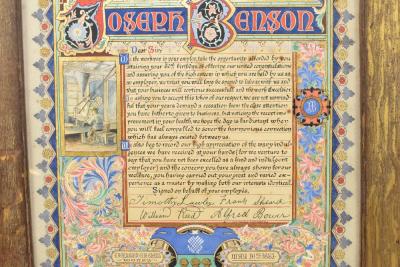 JOSEPH BENSON
Dear Sir,
We the workmen in your employ, take the opportunity afforded by you
attaining your 80th birthday, of offering our united congratulations
and assuring you of the high esteem in which you are held by us as
an employer, we trust you will long be spared to labour with us and
that your business will continue successful and the work
In asking you to accept this token of our respect, we are not unmind-
ful that your years demand a cessation from the close attention
you have hitherto given to business, but
in your health, we hope the day is far distant when
you will feel compelled to sever the harmonious connection
which has always existed between us.
We also beg to record our high appreciation of the many indul-
gences we have received at your hands (for we venture to
say that you have not been excelled as a kind and indulgent
employer) and the concern you have always shown for our
welfare, you having carried out your great and varied exp-
erience as a master by making both our interests identical.
Signed on behalf of your employés,
Timothy Lawler Frank
William Reid Alfred Bower